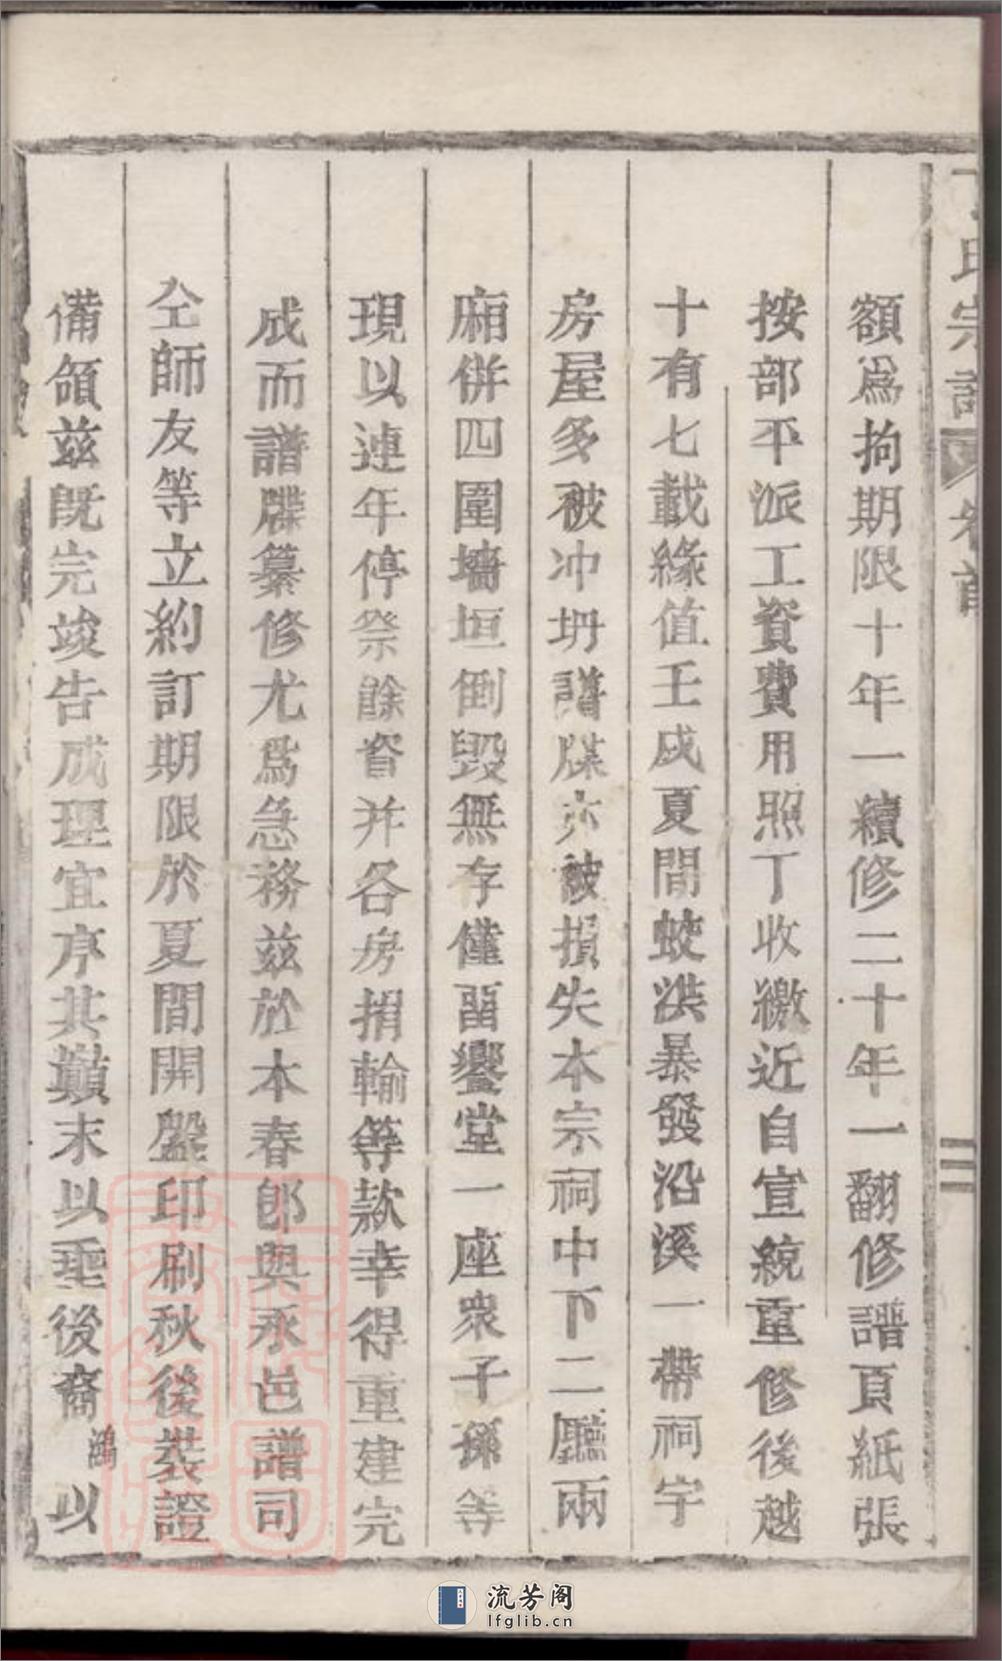 氏宗譜 卷首
額爲拘期限十年一續修二十年一翻修譜頁紙張
按部平派工資費用照丁收繳近自宣統重修後越
十有七載緣值壬戌夏間蛟洪暴發沿溪一帶祠宇
房屋多被冲坍譜牒亦被損失本宗祠中下二廳兩
廂併四圍墻垣倒毀無存僅畱饗堂一座衆子孫等
現以連年停祭餘資并各房捐輸等款幸得重建完
成而譜牒纂修尤爲急務兹於本春郎與承邑譜司
仝師友等立約訂期限於夏間開盤印刷秋後裝證
備領兹既完竣告成理宜序其巔末以垂後裔鴻以
流芳阁
lfglib.cn